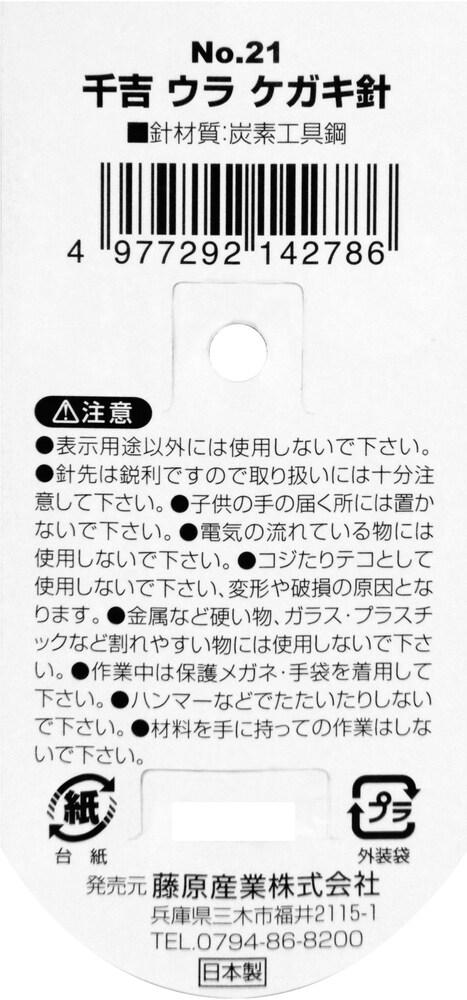 No.21
千吉 ウラ ケガキ針
■針材質:炭素工具鋼
4 977292 142786
⚠注意
●表示用途以外には使用しないで下さい。
●針先は鋭利ですので取り扱いには十分注
意して下さい。●子供の手の届く所には置か
ないで下さい。●電気の流れている物には
使用しないで下さい。●コジたりテコとして
使用しないで下さい、変形や破損の原因とな
ります。●金属など硬い物、ガラス・プラスチ
ックなど割れやすい物には使用しないで下さ
い。●作業中は保護メガネ・手袋を着用して
下さい。●ハンマーなどでたたいたりしない
で下さい。●材料を手に持っての作業はしな
いで下さい。
紙
台紙
プラ
外装袋
発売元 藤原産業株式会社
兵庫県三木市福井2115-1
TEL.0794-86-8200
日本製